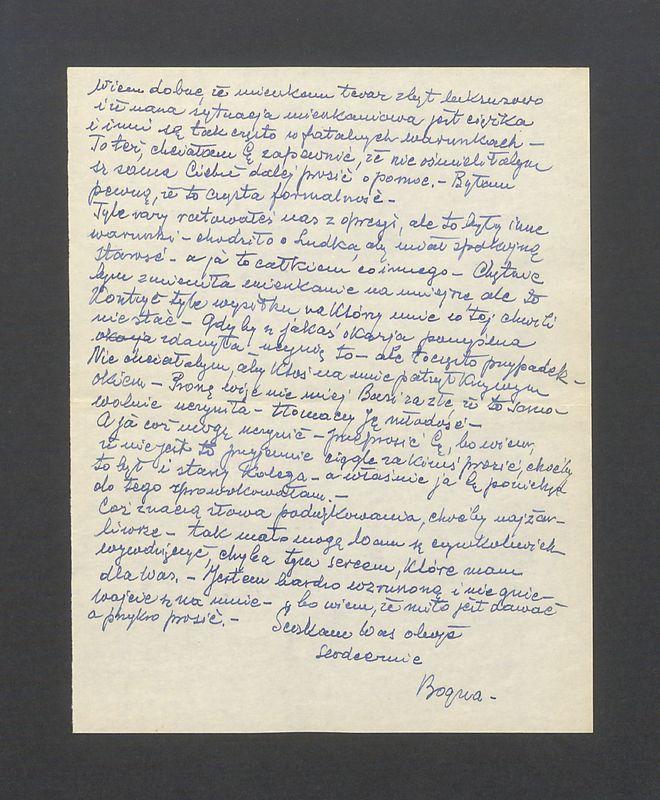 Wiem dobrze, że mieszkam teraz zbyt luksusowo
i że nasza sytuacja mieszkaniowa jest ciężka
i inni są tak często w fatalnych warunkach –
To też, chciałam Cię zapewnić, że nie ośmieliłabym
się sama Ciebie dalej prosić o pomoc. – Byłam
pewną, że to czysta formalność –
Tyle razy ratowałeś nas z opresji, ale to były inne
warunki – chodziło o Ludka, aby miał spokojną
starość – a ja to całkiem co innego – Chętnie
bym zmieniła mieszkanie na mniejsze ale to
kosztuje tyle wysiłku na który mnie w tej chwili
nie stać – Gdyby się jakaś okazja pomyślna
zdarzyła – uczynię to – ale to często przypadek –
Nie chciałabym, aby ktoś na mnie patrzył krzywym
okiem – Proszę więc nie miej Basi za złe, że to samo-
wolnie uczyniła – tłomaczy Ją młodość –
A ja cóż mogę uczynić – przeprosić Cię, bo wiem,
że nie jest to przyjemnie ciągle za kimś prosić, choćby
to był i stary kolega – a właśnie ja Cię
do tego sprowokowałam. –
Cóż znaczą słowa podziękowania, choćby najżar-
liwsze – tak mało mogę Wam się czymkolwiek
wywdzięczyć, chyba tym sercem, które mam
dla Was. – Jestem bardzo wzruszoną i nie gnie-
wajcie się na mnie – bo wiem, że miło jest dawać
a przykro prosić. –
Ściskam Was oboje
serdecznie
Bogna –